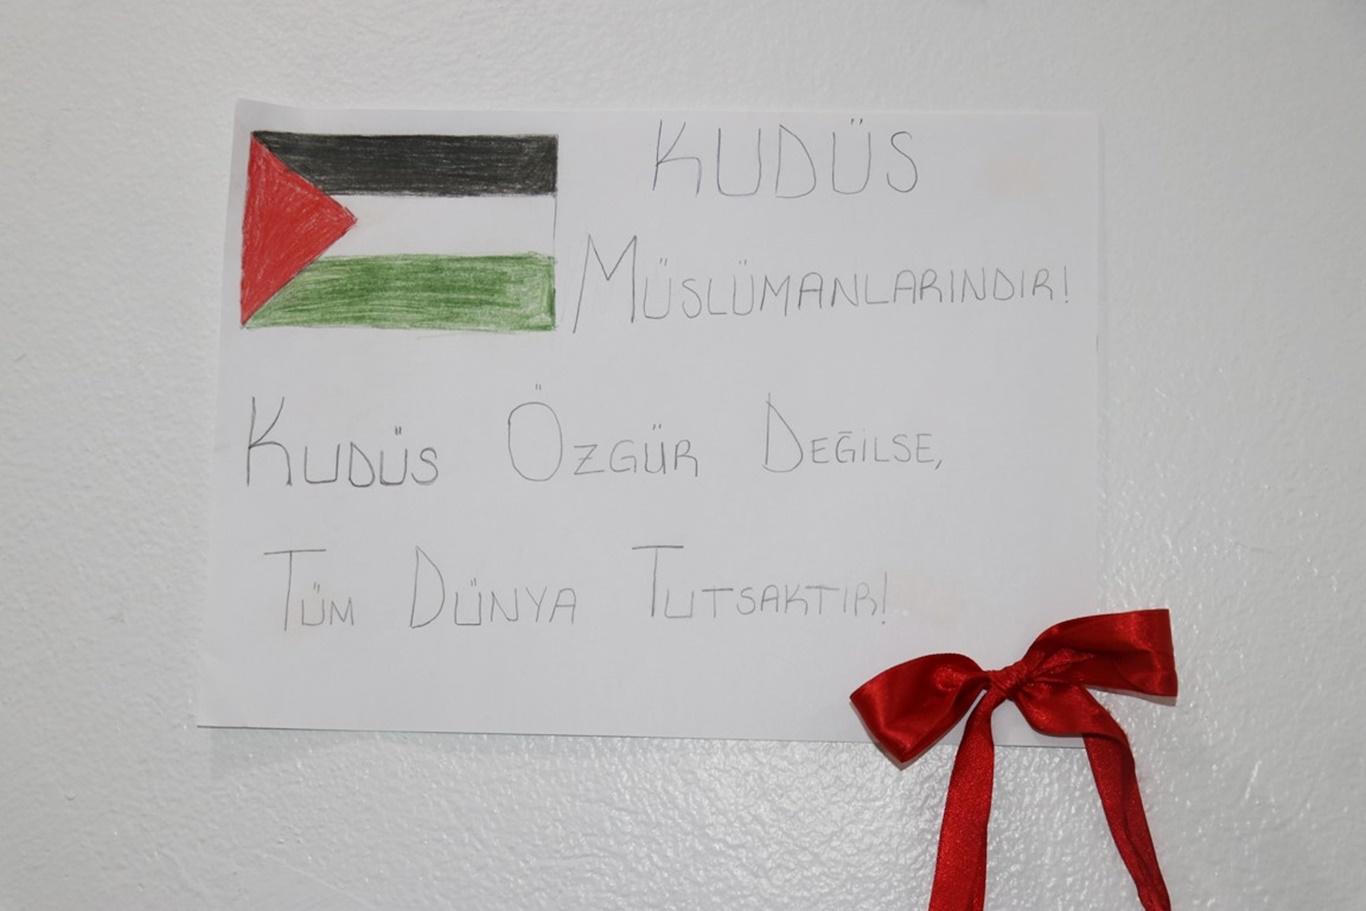 KUDÜS
MÜSLÜMANLARINDIR!
KUDÜS ÖZGÜR DEĞİLSE,
TÜM DÜNYA TUTSAKTIR!